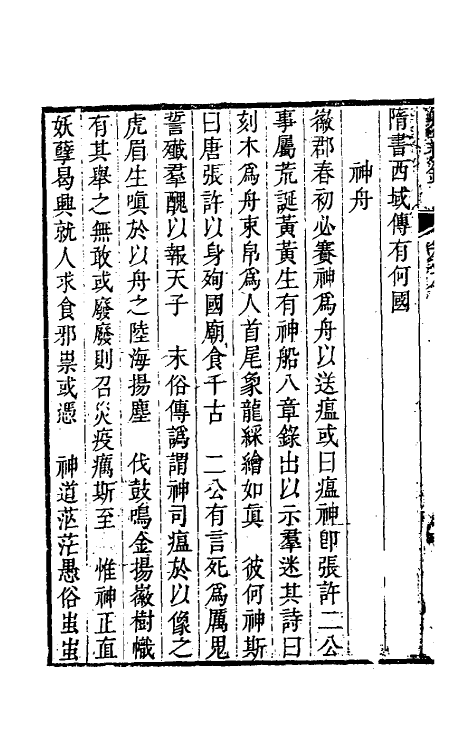 隋書西域傳有何國
神舟
徽郡春初必賽神爲舟以送瘟或曰瘟神卽張許二公
事屬荒誕黃黃生有神船八章錄出以示羣迷其詩曰
刻木爲舟束帛爲人首尾象龍綵繪如眞　彼何神斯
曰唐張許以身殉國廟食千古　二公有言死爲厲鬼
誓殲羣醜以報天子　末俗傳譌謂神司瘟於以像之
虎眉生嗔於以舟之陸海揚塵　伐鼓鳴金揚徽樹幟
有其舉之無敢或廢廢則召災疫癘斯至　惟神正直
妖孽曷興就人求食邪祟或憑　神道茫茫愚俗蚩蚩